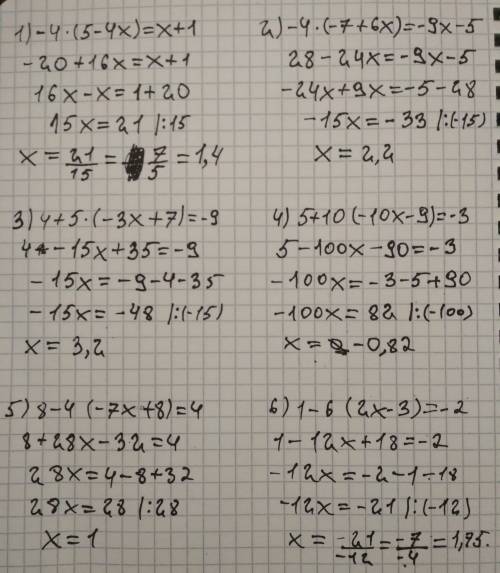 1) -4·(5-4x)=x+1
-20+16x=x+1
16x-x=1+20
15x=21 |:15
x=21/15= 7/5=1,4
2) -4·(-7+6x)=-9x-5
28-24x=-9x-5
-24x+9x=-5-28
-15x=-33 |:(-15)
x=2,2
3) 4+5·(-3x+7)=-9
4-15x+35=-9
-15x=-9-4-35
-15x=-48 |:(-15)
x=3,2
4) 5+10(-10x-9)=-3
5-100x-90=-3
-100x=-3-5+90
-100x=82 |:(-100)
x=-0,82
5) 8-4 (-7x+8)=4
8+28x-32=4
28x=4-8+32
28x=28 |:28
x=1
6) 1-6 (2x-3)=-2
1-12x+18=-2
-12x=-2-1-18
-12x=-21 |:(-12)
x=-21/-12=-7/-4=1,75.